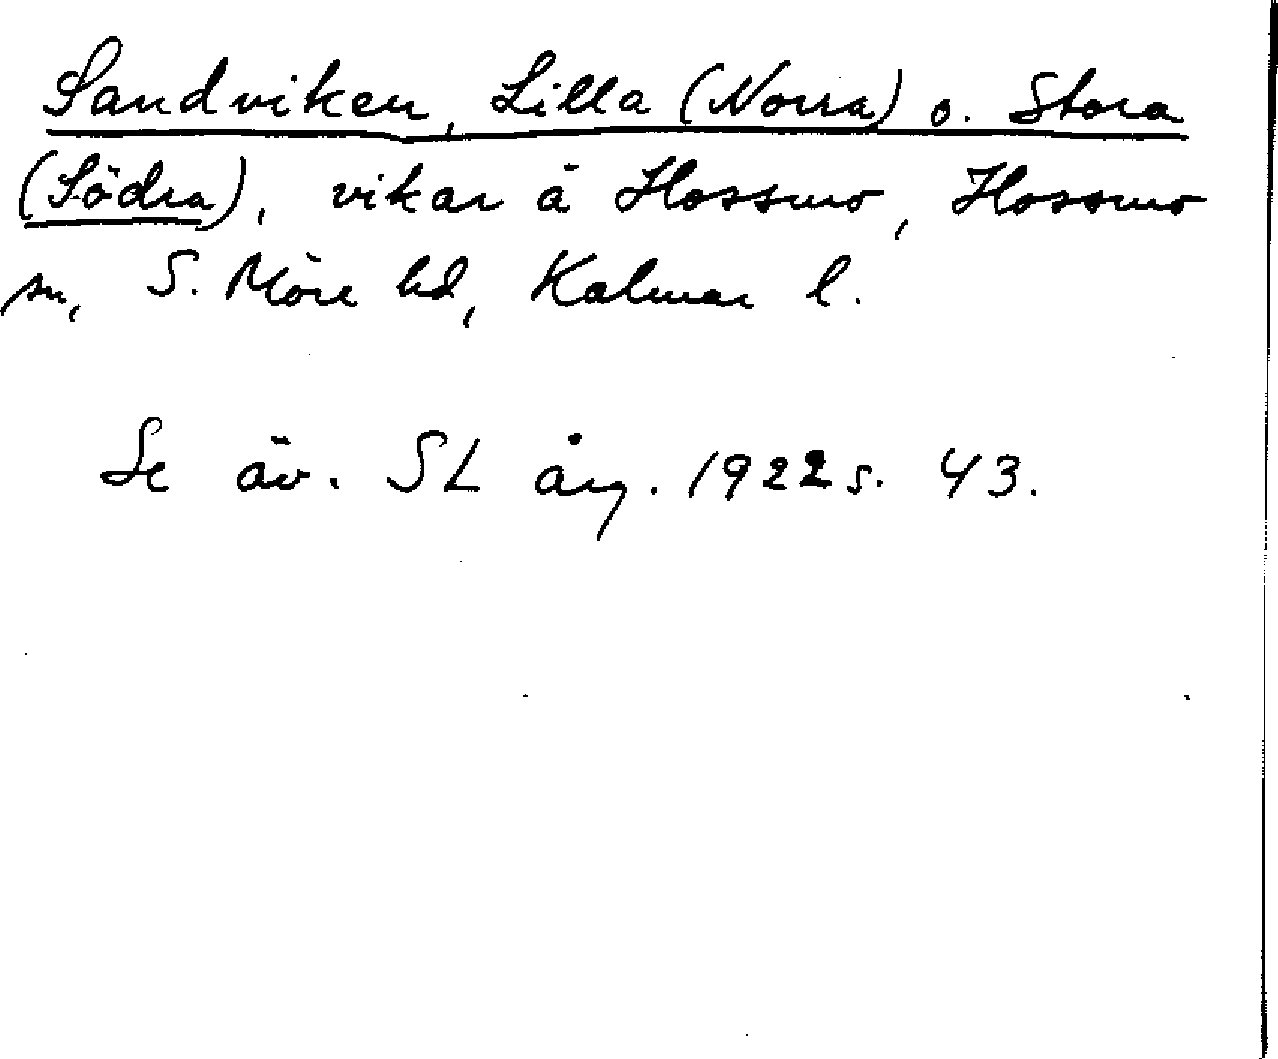 Sandviken, Lilla (Norra) o. Stora
(Södra), vikar å Hossmo, Hossmo
sn, S. Möre hd, Kalmar l.
Se äv. SL årg. 1922 s. 43.